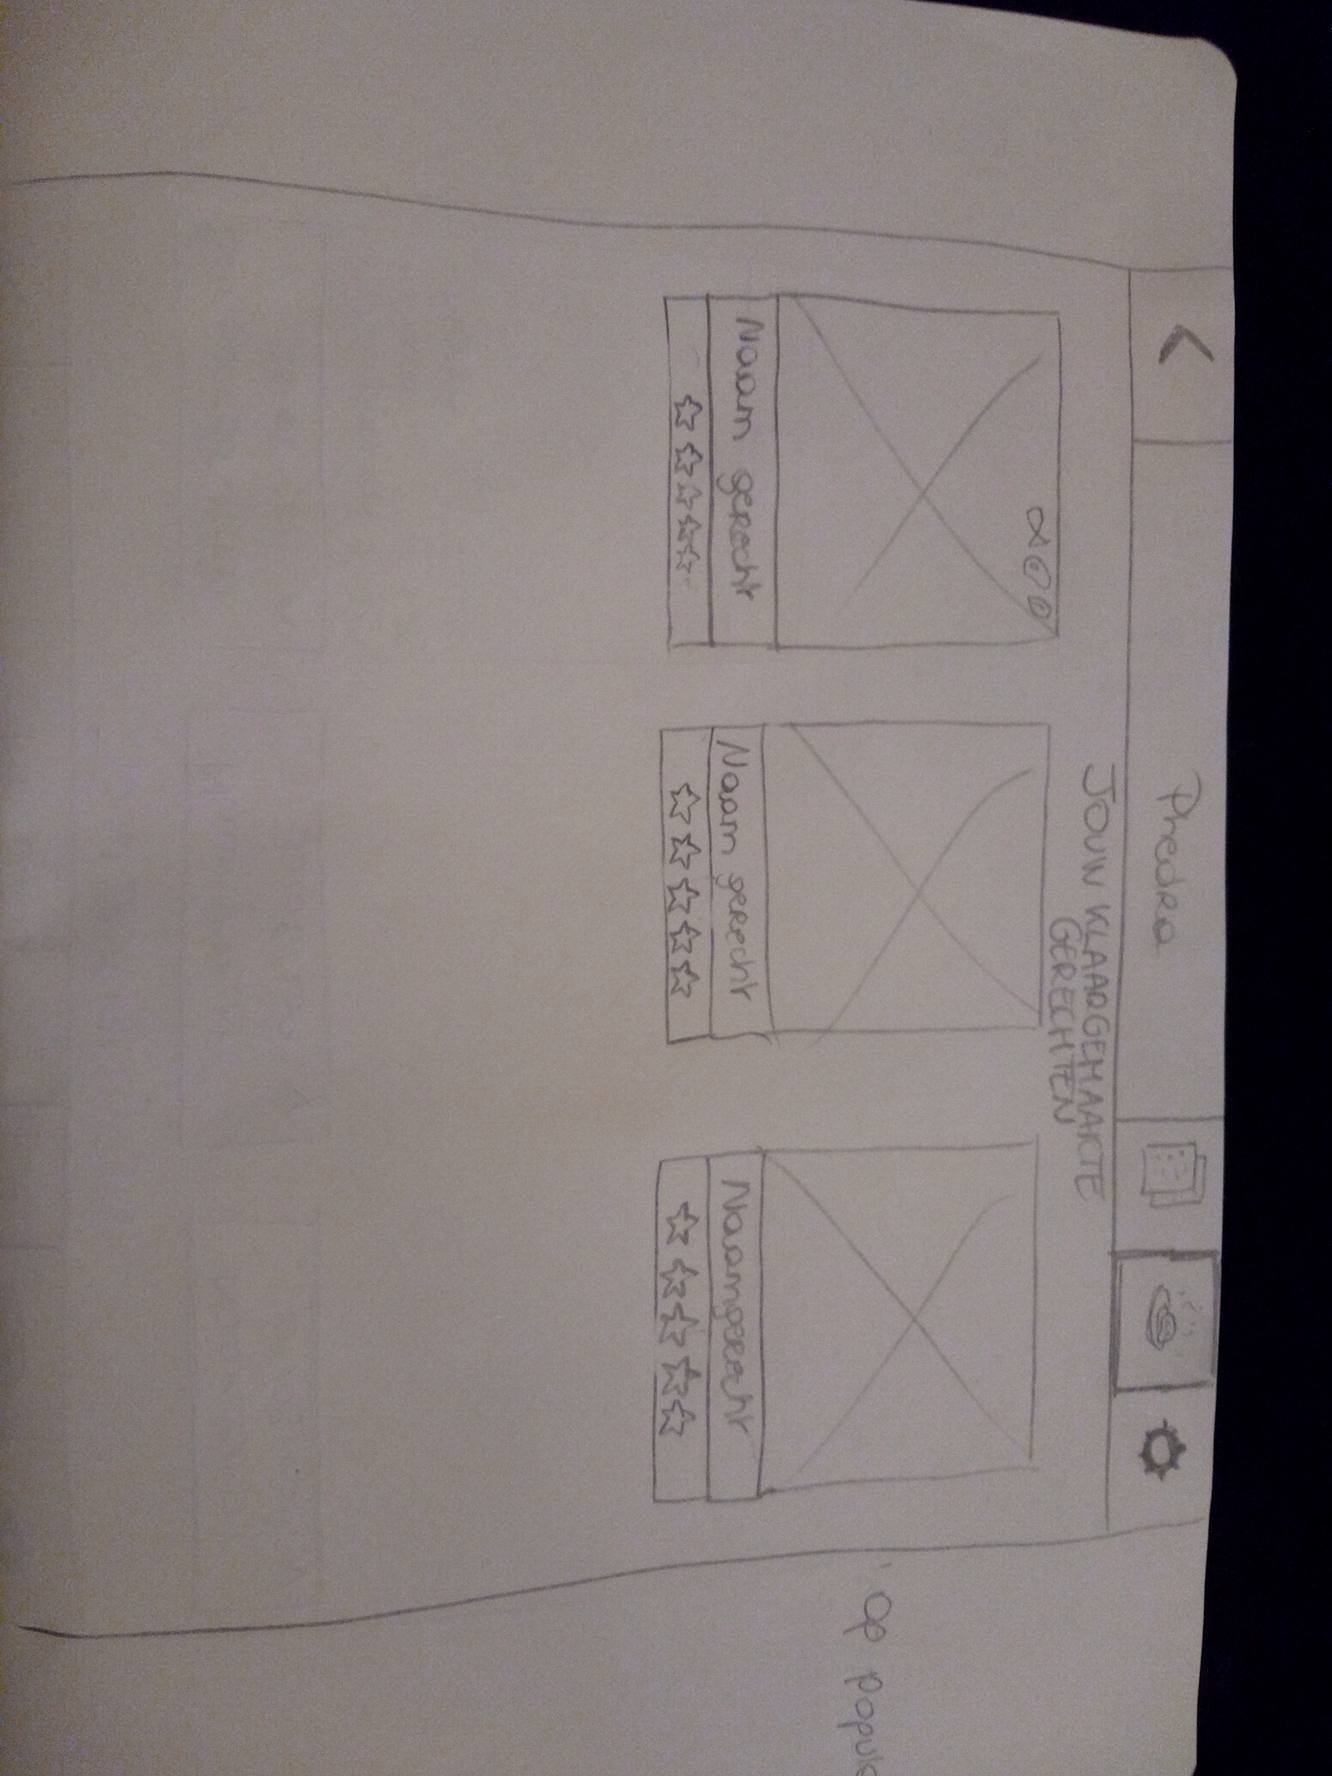 Phedra
JOUW KLAARGEMAAKTE
GERECHTEN
Naam gerecht
Naam gerecht
Naamgerecht
op popul